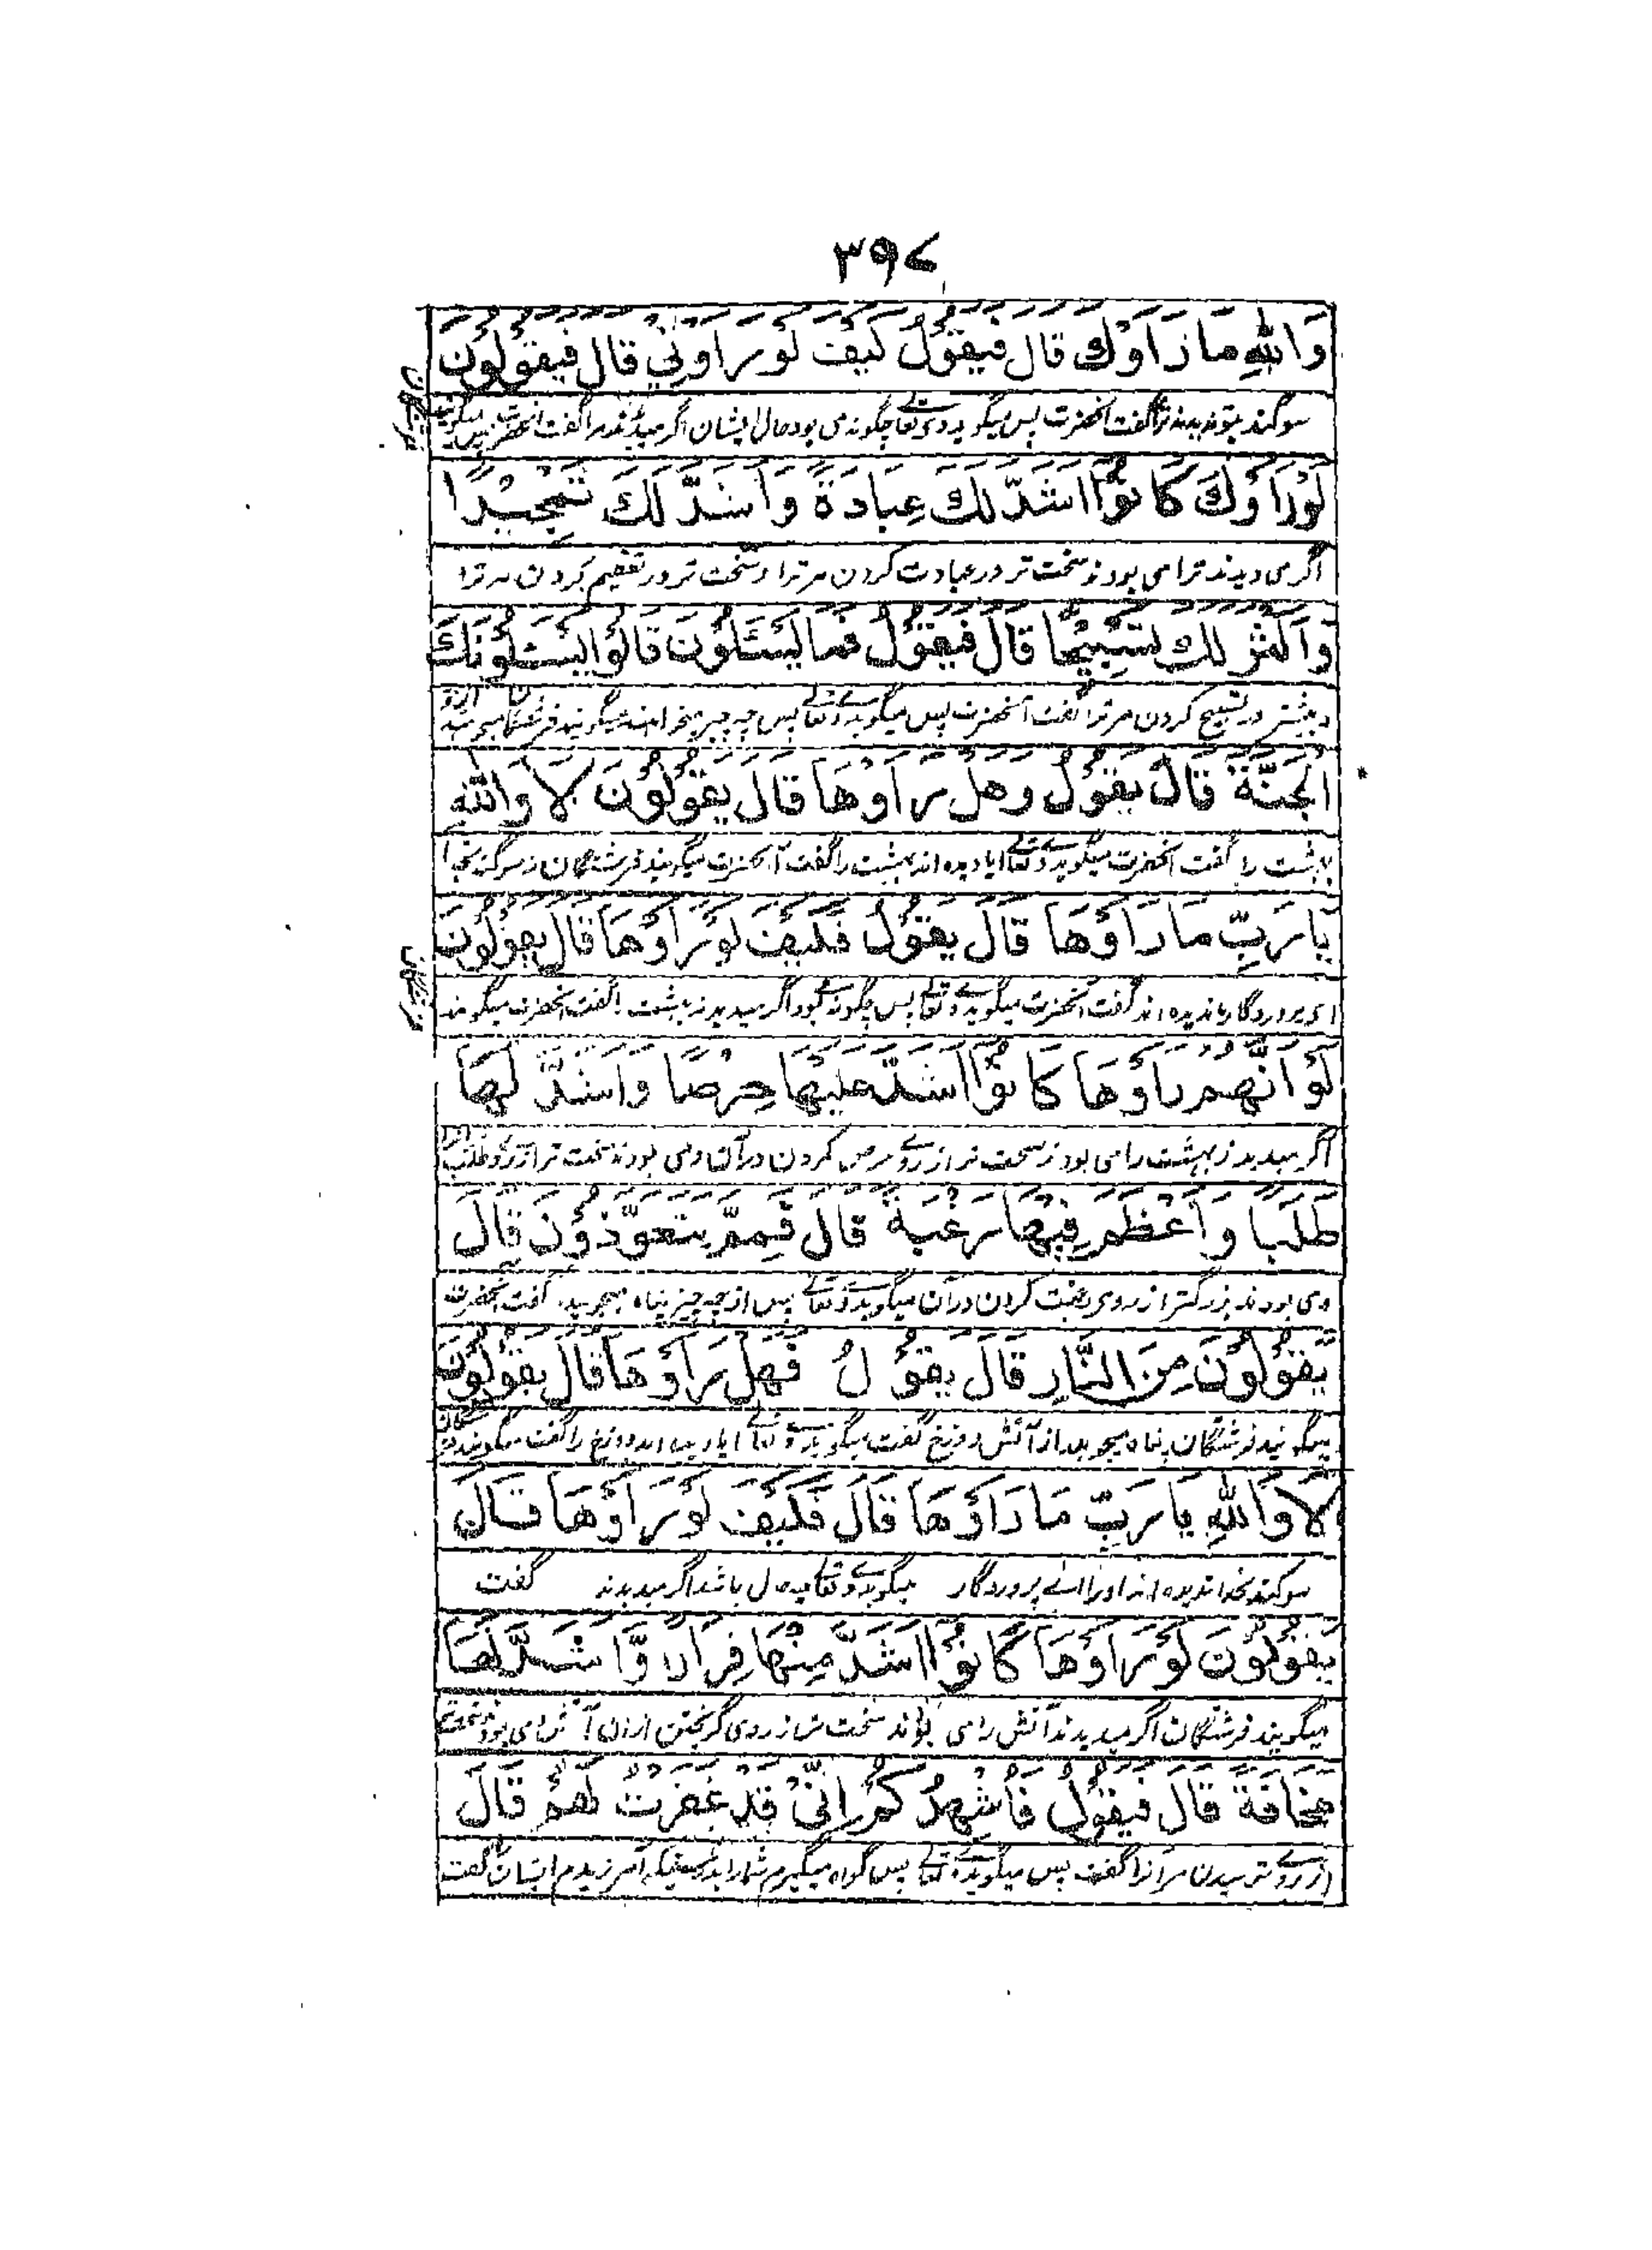 ۳۹۷
وَاللهِ مَا رَاَوْكَ قال فَيَقُوْلُ كَيْفَ لَوْ رَاَوْنِي قال فَيَقُوْلُوْنَ
سوگند بتو ندیدند ترا گفت آنحضرت پس میگوید وی تعالے چگونه می بود حال ایشان اگر میدیدند مرا گفت آنحضرت پس میگویند
لَوْرَاَوْكَ كَانُوْا اَشَدَّ لَكَ عِبَادَةً وَاَشَدَّ لَكَ تَمْجِيْدًا
اگر می دیدند ترا می بودند سخت تر در عبادت کردن مر ترا و سخت تر در تعظیم کردن مر ترا
وَاَكْثَرَ لَكَ تَسْبِيْحًا قَالَ فَيَقُوْلُ فَمَا يَسْئَلُوْنَ قَالُوْا يَسْئَلُوْنَكَ
و بیشتر در تسبیح کردن مر ترا گفت آنحضرت پس میگوید وے تعالے پس چه چیز میخواهند میگویند فرشتگان میجویند از تو
الْجَنَّةَ قَالَ يَقُوْلُ وَهَلْ رَاَوْهَا قَالَ يَقُوْلُوْنَ لَا وَاللهِ
بهشت را گفت آنحضرت میگوید وے تعالے ایا دیده اند بهشت را گفت آنحضرت میگویند فرشتگان نه سوگند بخدا
يَا رَبِّ مَا رَاَوْهَا قَالَ يَقُوْلُ فَكَيْفَ لَوْ رَاَوْهَا قَالَ يَقُوْلُوْنَ
ای پروردگار ما ندیده اند گفت آنحضرت میگوید وے تعالے پس چگونه بود اگر میدیدند بهشت را گفت آنحضرت میگویند
لَوْ اَنَّهُمْ رَاَوْهَا كَانُوْا اَشَدَّ عَلَيْهَا حِرْصًا وَاَشَدَّ لَهَا
اگر میدیدند بهشت را می بودند سخت تر از روے حرص کردن در آن و می بودند سخت تر از روے طلب
طَلَبًا وَاَعْظَمَ فِيْهَا رَغْبَةً قَالَ فَمِمَّ يَتَعَوَّذُوْنَ قَالَ
و می بودند بزرگتر از روی رغبت کردن در آن میگوید وے تعالے پس از چه چیز پناه میجویند گفت آنحضرت
يَقُوْلُوْنَ مِنَ النَّارِ قَالَ يَقُوْلُ فَهَلْ رَاَوْهَا قَالَ يَقُوْلُوْنَ
میگویند فرشتگان پناه میجویند از آتش دوزخ گفت میگوید وے تعالے ایا دیده اند دوزخ را گفت میگویند فرشتگان
لَا وَاللهِ يَا رَبِّ مَا رَاَوْهَا قَالَ فَكَيْفَ لَوْ رَاَوْهَا قَالَ
سوگند بخدا ندیده اند اورا اے پروردگار میگوید وے تعالے چه حال باشد اگر میدیدند گفت
يَقُوْلُوْنَ لَوْ رَاَوْهَا كَانُوْا اَشَدَّ مِنْهَا فِرَارًا وَّاَشَدَّ لَهَا
میگویند فرشتگان اگر میدیدند آتش را می بودند سخت تر از روی گریختن ازان آتش و می بودند سخت تر
مَخَافَةً قَالَ فَيَقُوْلُ فَاُشْهِدُكُمْ اَنِّيْ قَدْ غَفَرْتُ لَهُمْ قَالَ
از روے ترسیدن مر آنرا گفت پس میگوید وے تعالے پس گواه میگیرم شمارا بدرستیکه آمرزیدم ایشان را گفت